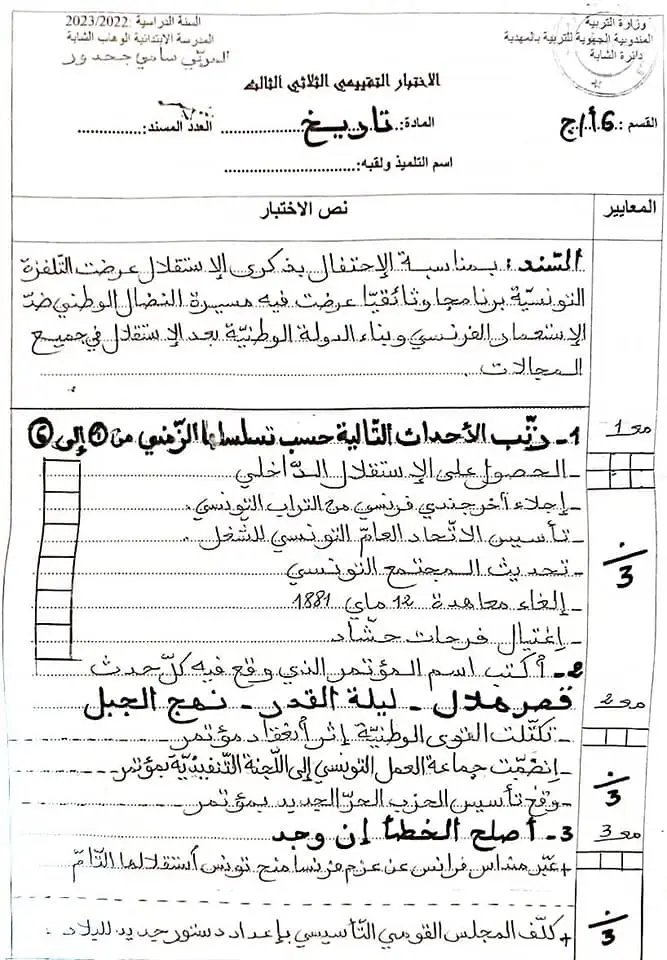 وزارة التربية
المندوبية الجهوية للتربية بالمهدية
دائرة الشابة
السنة الدراسية 2023/2022
المدرسة الابتدائية الوهاب الشابة
المربّي سامي جحدور
الاختبار التقييمي الثلاثي الثالث
القسم :6أ/ج المادة: تاريخ العدد المسند:
اسم التلميذ ولقبه:
المعايير نص الاختبار
السّند : بمناسبة الإحتفال بذكرى الإستقلال عرضت التلفزة
التونسيّة برنامجا وثائقيّا عرضت فيه مسيرة النضال الوطني ضدّ
الإستعمار الفرنسي وبناء الدولة الوطنيّة بعد الإستقلال في جميع
المجالات.
مع1 1- رتّب الأحداث التّالية حسب تسلسلها الزّمني من 1 إلى 6
- الحصول على الإستقلال الدّاخلي
- إجلاء آخر جندي فرنسي من التراب التونسي.
- تأسيس الاتّحاد العامّ التونسي للشّغل.
- تحديث المجتمع التونسي
- إلغاء معاهدة 12 ماي 1881
- إغتيال فرحات حشّاد
3
2- أكتب اسم المؤتمر الذي وقع فيه كلّ حدث
مع2 قصر هلال - ليلة القدر - نهج الجبل
- تكتّلت القوى الوطنيّة إثر أنعقاد مؤتمر
- إنضمّت جماعة العمل التونسي إلى اللّجنة التّنفيذيّة بمؤتمر
- وقع تأسيس الحزب الحرّ الجديد بمؤتمر
3
مع3 3- أصلح الخطأ إن وجد
+ عبّر منداس فرانس عن عزم فرنسا منح تونس أستقلالها التّامّ
+ كلّف المجلس القومي التّأسيسي بإعداد دستور جديد للبلاد.
3